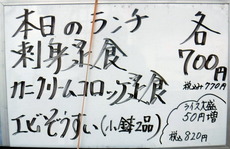 本日のランチ 各
刺身定食 700円
税込み770円
カニクリームコロッケ定食
ライス大盛
50円増
エビぞうすい(小鉢2品)
税込820円